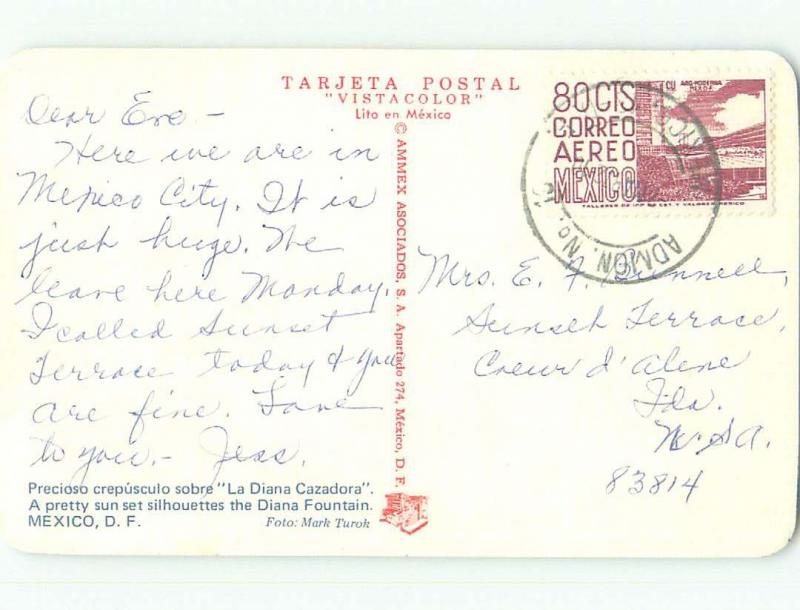 TARJETA POSTAL
"VISTACOLOR"
Lito en México
Dear Eve -
Here we are in
Mexico City. It is
just huge. We
leave here Monday.
I called Sunset
Terrace today & you
are fine. Love
to you. - Jess.
Precioso crepúsculo sobre "La Diana Cazadora".
A pretty sun set silhouettes the Diana Fountain.
MEXICO, D. F.
Foto: Mark Turok
© AMMEX ASOCIADOS, S. A. Apartado 274, México, D. F.
80 CTS
CORREO
AEREO
MEXICO
CU ARQ. MODERNA
MEX. D.F.
ADMON. No.
Mrs. E. F.
Sunset Terrace,
Coeur d'Alene
Ida.
U.S.A.
83814